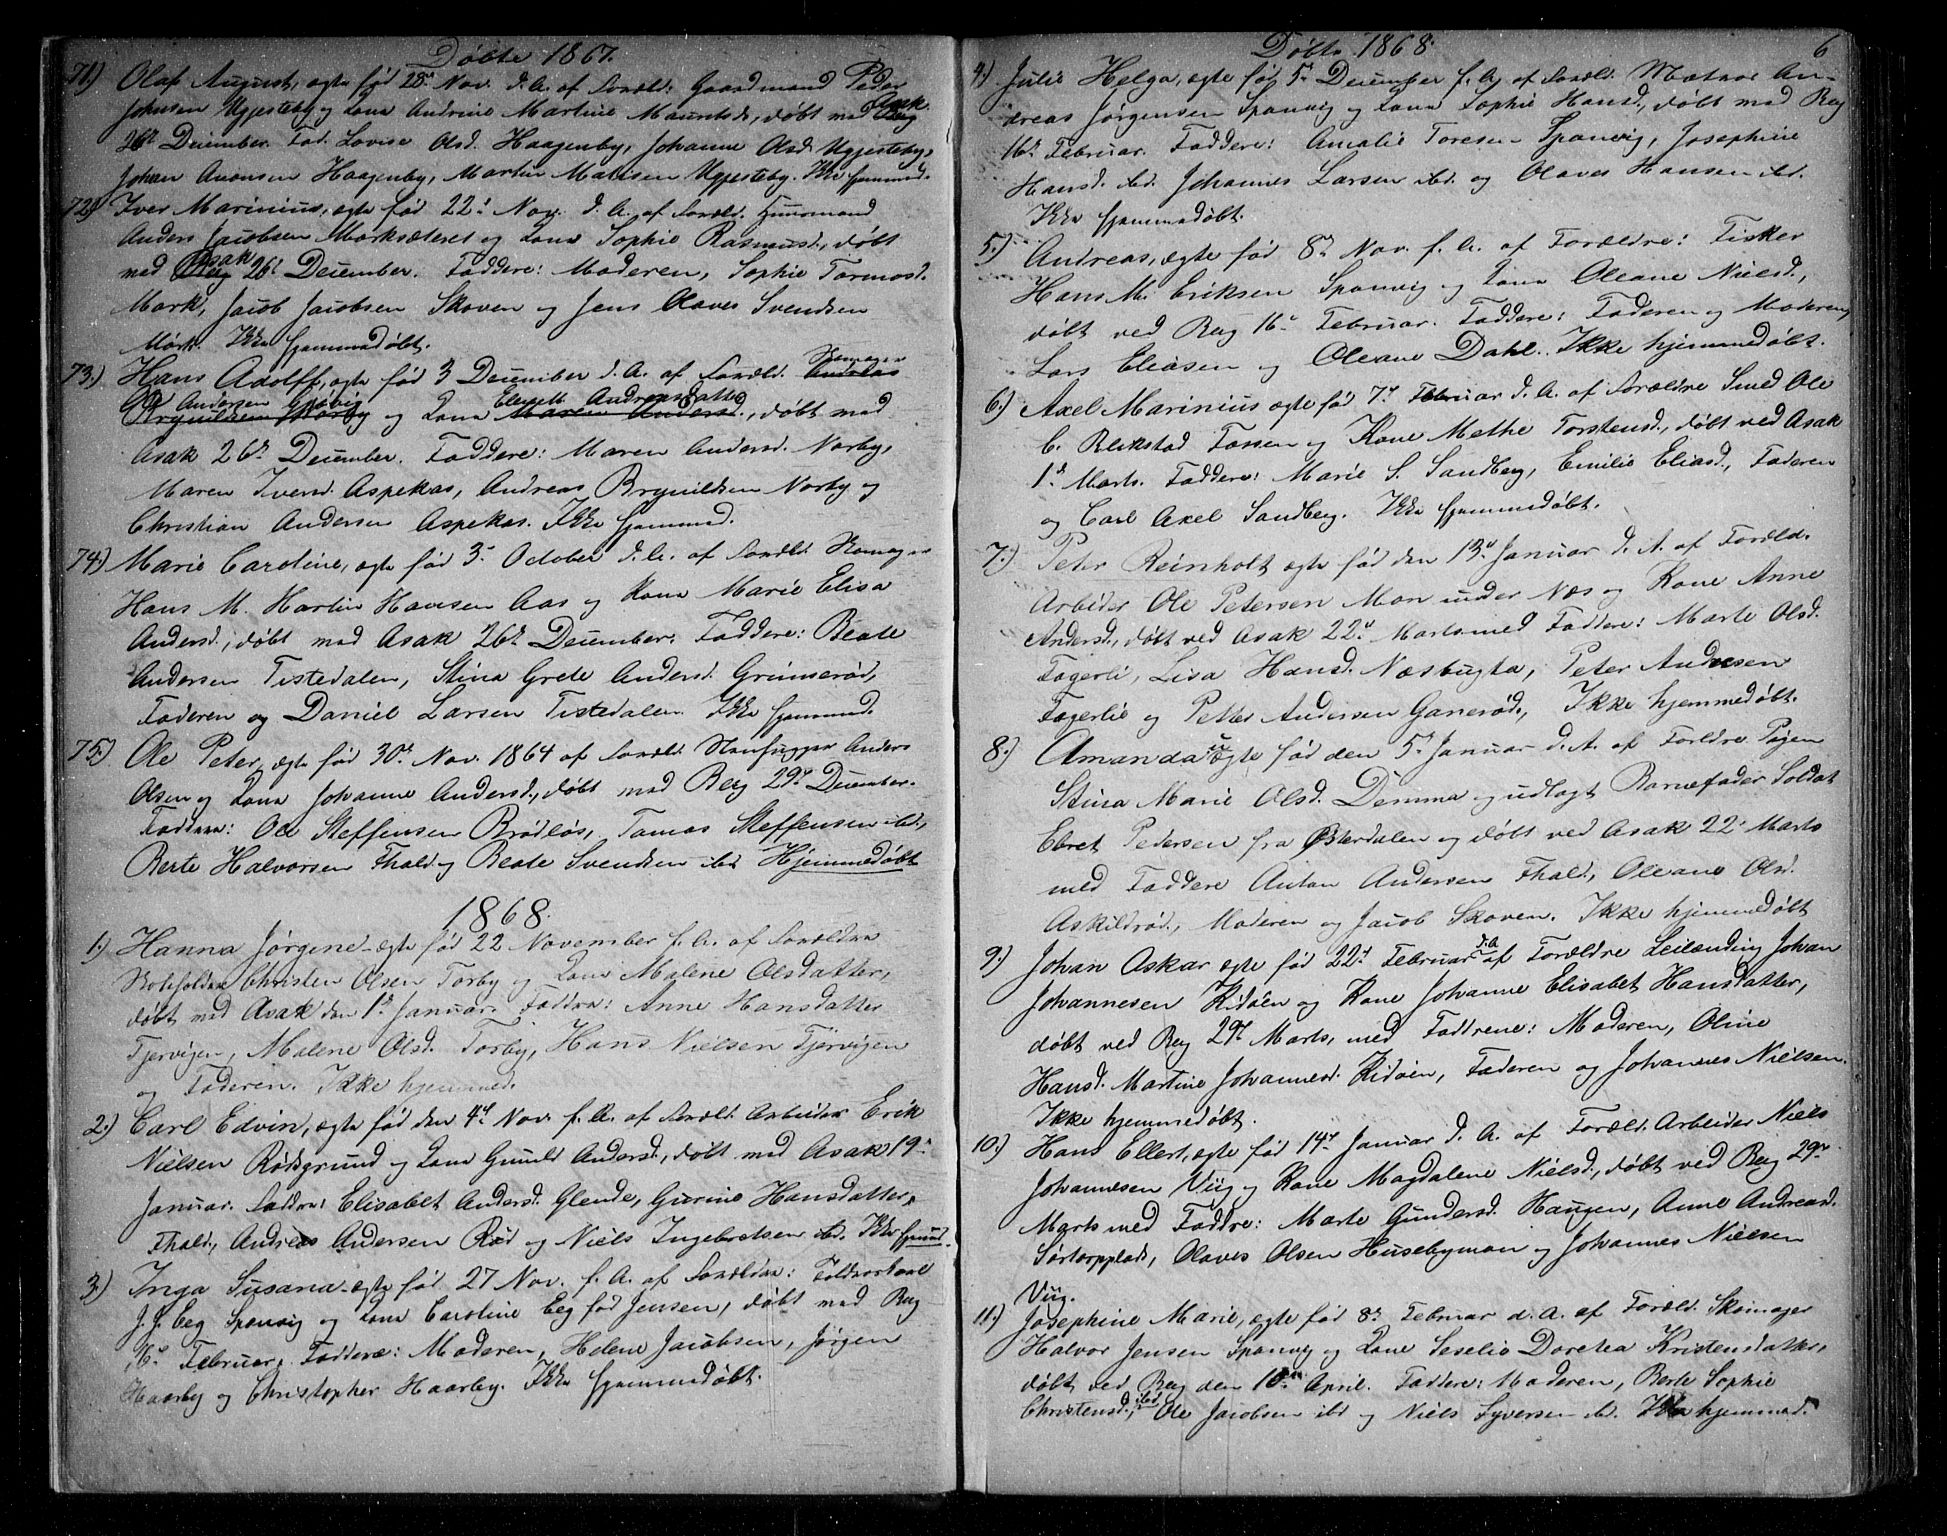 Döbte 1867.
71.) Olaf August, ægte fød 28de Nov. d. A. af Foræld. Gaardmand Peder
Johnsen Ugjesteby og Kone Andrine Martine Mauritsd., döbt ved Asak
26de December. Fad. Lovise Olsd. Haagenby, Johanne Olsd. Ugjesteby,
Johan Aronsen Haagenby, Martin Matisen Ugjesteby. Ikke hjemmed.
72.) Iver Marinius, ægte fød 22d Nov. d. A. af Foræld. Huusmand
Anders Jacobsen Morksæteret og Kone Sophie Rasmusd., döbt
Asak
ved Berg 26d December. Faddere: Moderen, Sophie Tormosd.
Mork, Jacob Jacobsen Skoven og Jens Olaves Svendsen
Mörk. Ikke hjemmedöbt.
Skomager
73.) Hans Adolff, ægte fød 3 December d. A. af Foræld. Andreas
Andersen Elisabeth Andreasdatter
Brynildsen Norby og Kone Maren Andersd., döbt ved
Asak 26de December. Faddere: Maren Andersd. Norby,
Maren Iversd. Aspekas, Andreas Brynildsen Norby og
Christian Andersen Aspekas. Ikke hjemmed.
74.) Marie Caroline, ægte fød 3. October d. A. af Foræld. Skomager
Hans M. Martin Hansen Aas og Kone Marie Elisa
Andersd., döbt ved Asak 26de December. Faddere: Beate
Andersen Tistedalen, Stina Grete Andersd. Grimserød,
Faderen og Daniel Larsen Tistedalen. Ikke hjemmed.
75.) Ole Peter, ægte fød 30de Nov. 1864 af Foræld. Steenhugger Anders
Olsen og Kone Johanne Andersd., döbt ved Berg 29de December.
Faddere: Ole Steffensen Brödlös, Tomas Steffensen ibd.,
Berte Halvorsen Thald og Beate Svendsen ibd. Hjemmedöbt
1868.
1.) Hanna Jørgine ægte fød 22 November f. A. af Forældre
Rolefolden Christen Olsen Torby og Kone Malene Olsdatter,
döbt ved Asak den 1de Januar. Faddre: Anne Hansdatter
Tjervigen, Malene Olsd. Torby, Hans Nielsen Tjervigen
og Faderen. Ikke hjemmed.
2.) Carl Edvin, ægte fød den 4de Nov. f. A. af Foræld. Arbeider Erik
Nielsen Rødsgrund og Kone Gunild Andersd., döbt ved Asak 19de
Januar. Faddre: Elisabet Andersd. Glende, Gurine Hansdatter,
Thald, Andreas Andersen Rød og Niels Ingebretsen ibd. Ikke hjemmd.
3.) Inga Susana ægte fød 27 Nov. f. A. af Forældre: Toldroerskarl
J. J. Eeg Sponvig og Kone Caroline Eeg fød Jensen, döbt ved Berg
16de Februar. Faddere: Moderen, Helene Jacobsen, Jørgen
Haarby og Christopher Haarby. Ikke hjemmedöbt.
Döbte 1868.
6
4.) Julie Helga, ægte fød 5de December f. A. af Foræld. Matros An-
dreas Jørgensen Sponvig og Kone Sophie Hansd., döbt ved Berg
16de Februar. Faddere: Amalie Toresen Sponvig, Josephine
Hansd. ibd. Johannes Larsen ibd. og Olaves Hansen ibd.
Ikke hjemmedöbt.
5.) Andreas, ægte fød 8de Nov. f. A. af Forældre: Fisker
Hans M. Eriksen Sponvig og Kone Oleane Nielsd.,
döbt ved Berg 16de Februar. Faddere: Faderen og Moderen,
Lars Eliasen og Oleane Dahl. Ikke hjemmedöbt.
6.) Axel Marinius ægte fød 7de Februar d. A. af Forældre Smed Ole
C. Blekstad Fossen og Kone Mathe Torstensd., döbt ved Asak
1de Marts. Faddere: Marie S. Sandberg, Emilie Eliasd., Faderen
og Carl Axel Sandberg. Ikke hjemmedöbt.
7.) Peter Reinholt ægte fød den 13de Januar d. A. af Foræld.
Arbeider Ole Petersen Mon under Næs og Kone Anne
Andersd., döbt ved Asak 22d Marts med Faddere: Marte Olsd.
Fagerli, Lisa Hansd. Næsbugta, Peter Andersen
Fagerlie og Petter Andersen Ganerød, Ikke hjemmedöbt.
8.) Amanda uægte fød den 5de Januar d. A. af Forldre Pigen
Stina Marie Olsd. Demma og udlagt Barnefader Soldat
Ebret Pedersen fra Østerdalen og döbt ved Asak 22d Marts
med Faddere Anton Andersen Thald, Oleane Olsd.
Askildrød, Moderen og Jacob Skoven. Ikke hjemmedöbt
9.) Johan Askar ægte fød 22d Februar d. A. af Forældre Leilænding Johan
Johannesen Kidöen og Kone Johanne Elisabet Hansdatter,
döbt ved Berg 29de Marts, med Faddrene: Moderen, Oline
Hansd. Martine Johannesd. Kidöen, Faderen og Johannes Nielsen.
Ikke hjemmedöbt.
10.) Hans Ellert, ægte fød 14de Januar d. A. af Foræld. Arbeider Niels
Johannesen Viig og Kone Magdalene Nielsd., döbt ved Berg 29de
Marts med Faddre: Marte Gundersd. Haugen, Anne Andreasd.
Sørtorpplads, Olaves Olsen Husebymon og Johannes Nielsen
Viig.
11.) Josephine Marie, ægte fød 8de Februar d. A. af Foræld. Skomager
Halvor Jensen Sponvig og Kone Seselie Dorthea Kristensdatter,
döbt ved Berg den 10de April. Faddere: Moderen, Berte Sophie
Christensd., ibd. Ole Jacobsen ibd og Niels Syversen ibd. Ikke hjemmed.